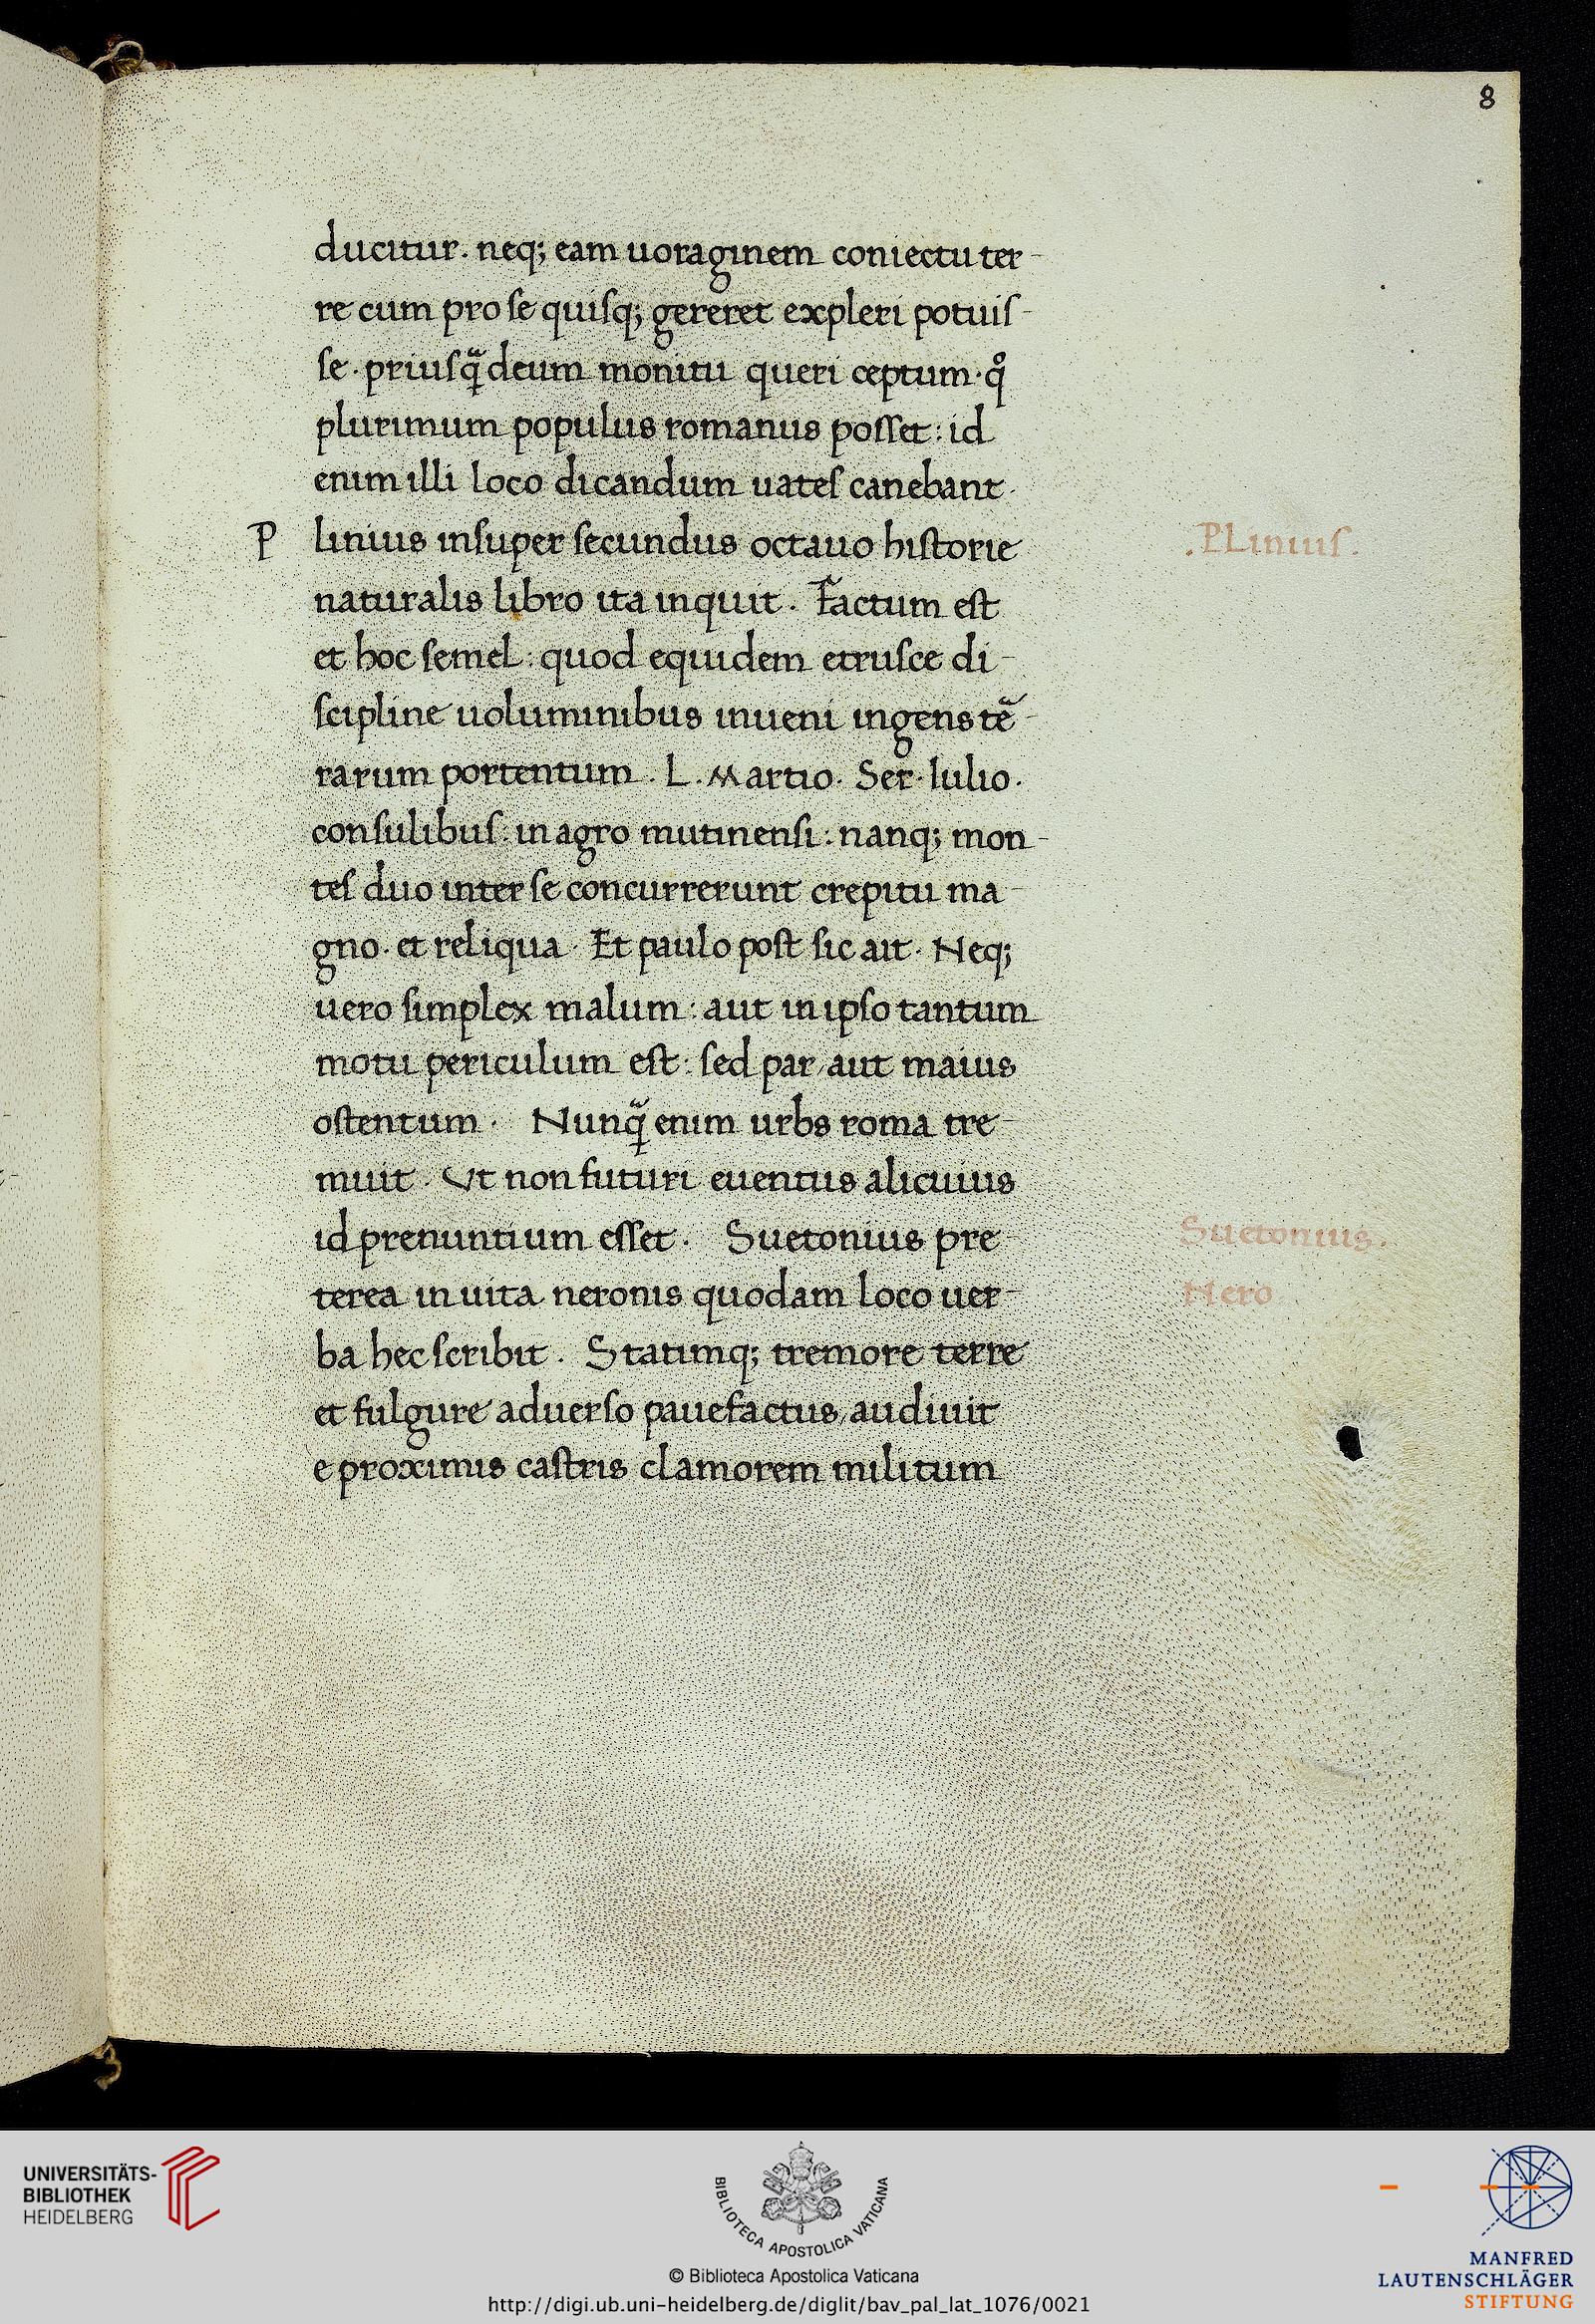 8
ducitur. neq; eam uoraginem coniectu ter-
re cum pro se quisq; gereret expleri potuis-
se. priusq̃ deum monitu queri ceptum. qͦ
plurimum populus romanus posset: id
enim illi loco dicandum uates canebant.
P linius insuper secundus octauo historie
.PLinius.
naturalis libro ita inquit. Factum est
et hoc semel: quod equidem etrusce di-
scipline uoluminibus inueni ingens tẽ-
rarum portentum. L. Martio. Ser. Iulio.
consulibus. in agro mutinensi: nanq; mon-
tes duo inter se concurrerunt crepitu ma-
gno. et reliqua. Et paulo post sic ait. Neq;
uero simplex malum: aut in ipso tantum
motu periculum est: sed par/ aut maius
ostentum. Nunq̃ enim urbs roma tre-
muit. Ut non futuri euentus alicuius
id prenuntium esset. Suetonius pre-
Suetonius.
terea in uita neronis quodam loco uer-
Nero
ba hec scribit. Statimq; tremore terre
et fulgure aduerso pauefactus/ audiuit
e proximis castris clamorem militum
UNIVERSITÄTS-
BIBLIOTHEK
HEIDELBERG
BIBLIOTECA APOSTOLICA VATICANA
© Biblioteca Apostolica Vaticana
http://digi.ub.uni-heidelberg.de/diglit/bav_pal_lat_1076/0021
MANFRED
LAUTENSCHLÄGER
STIFTUNG